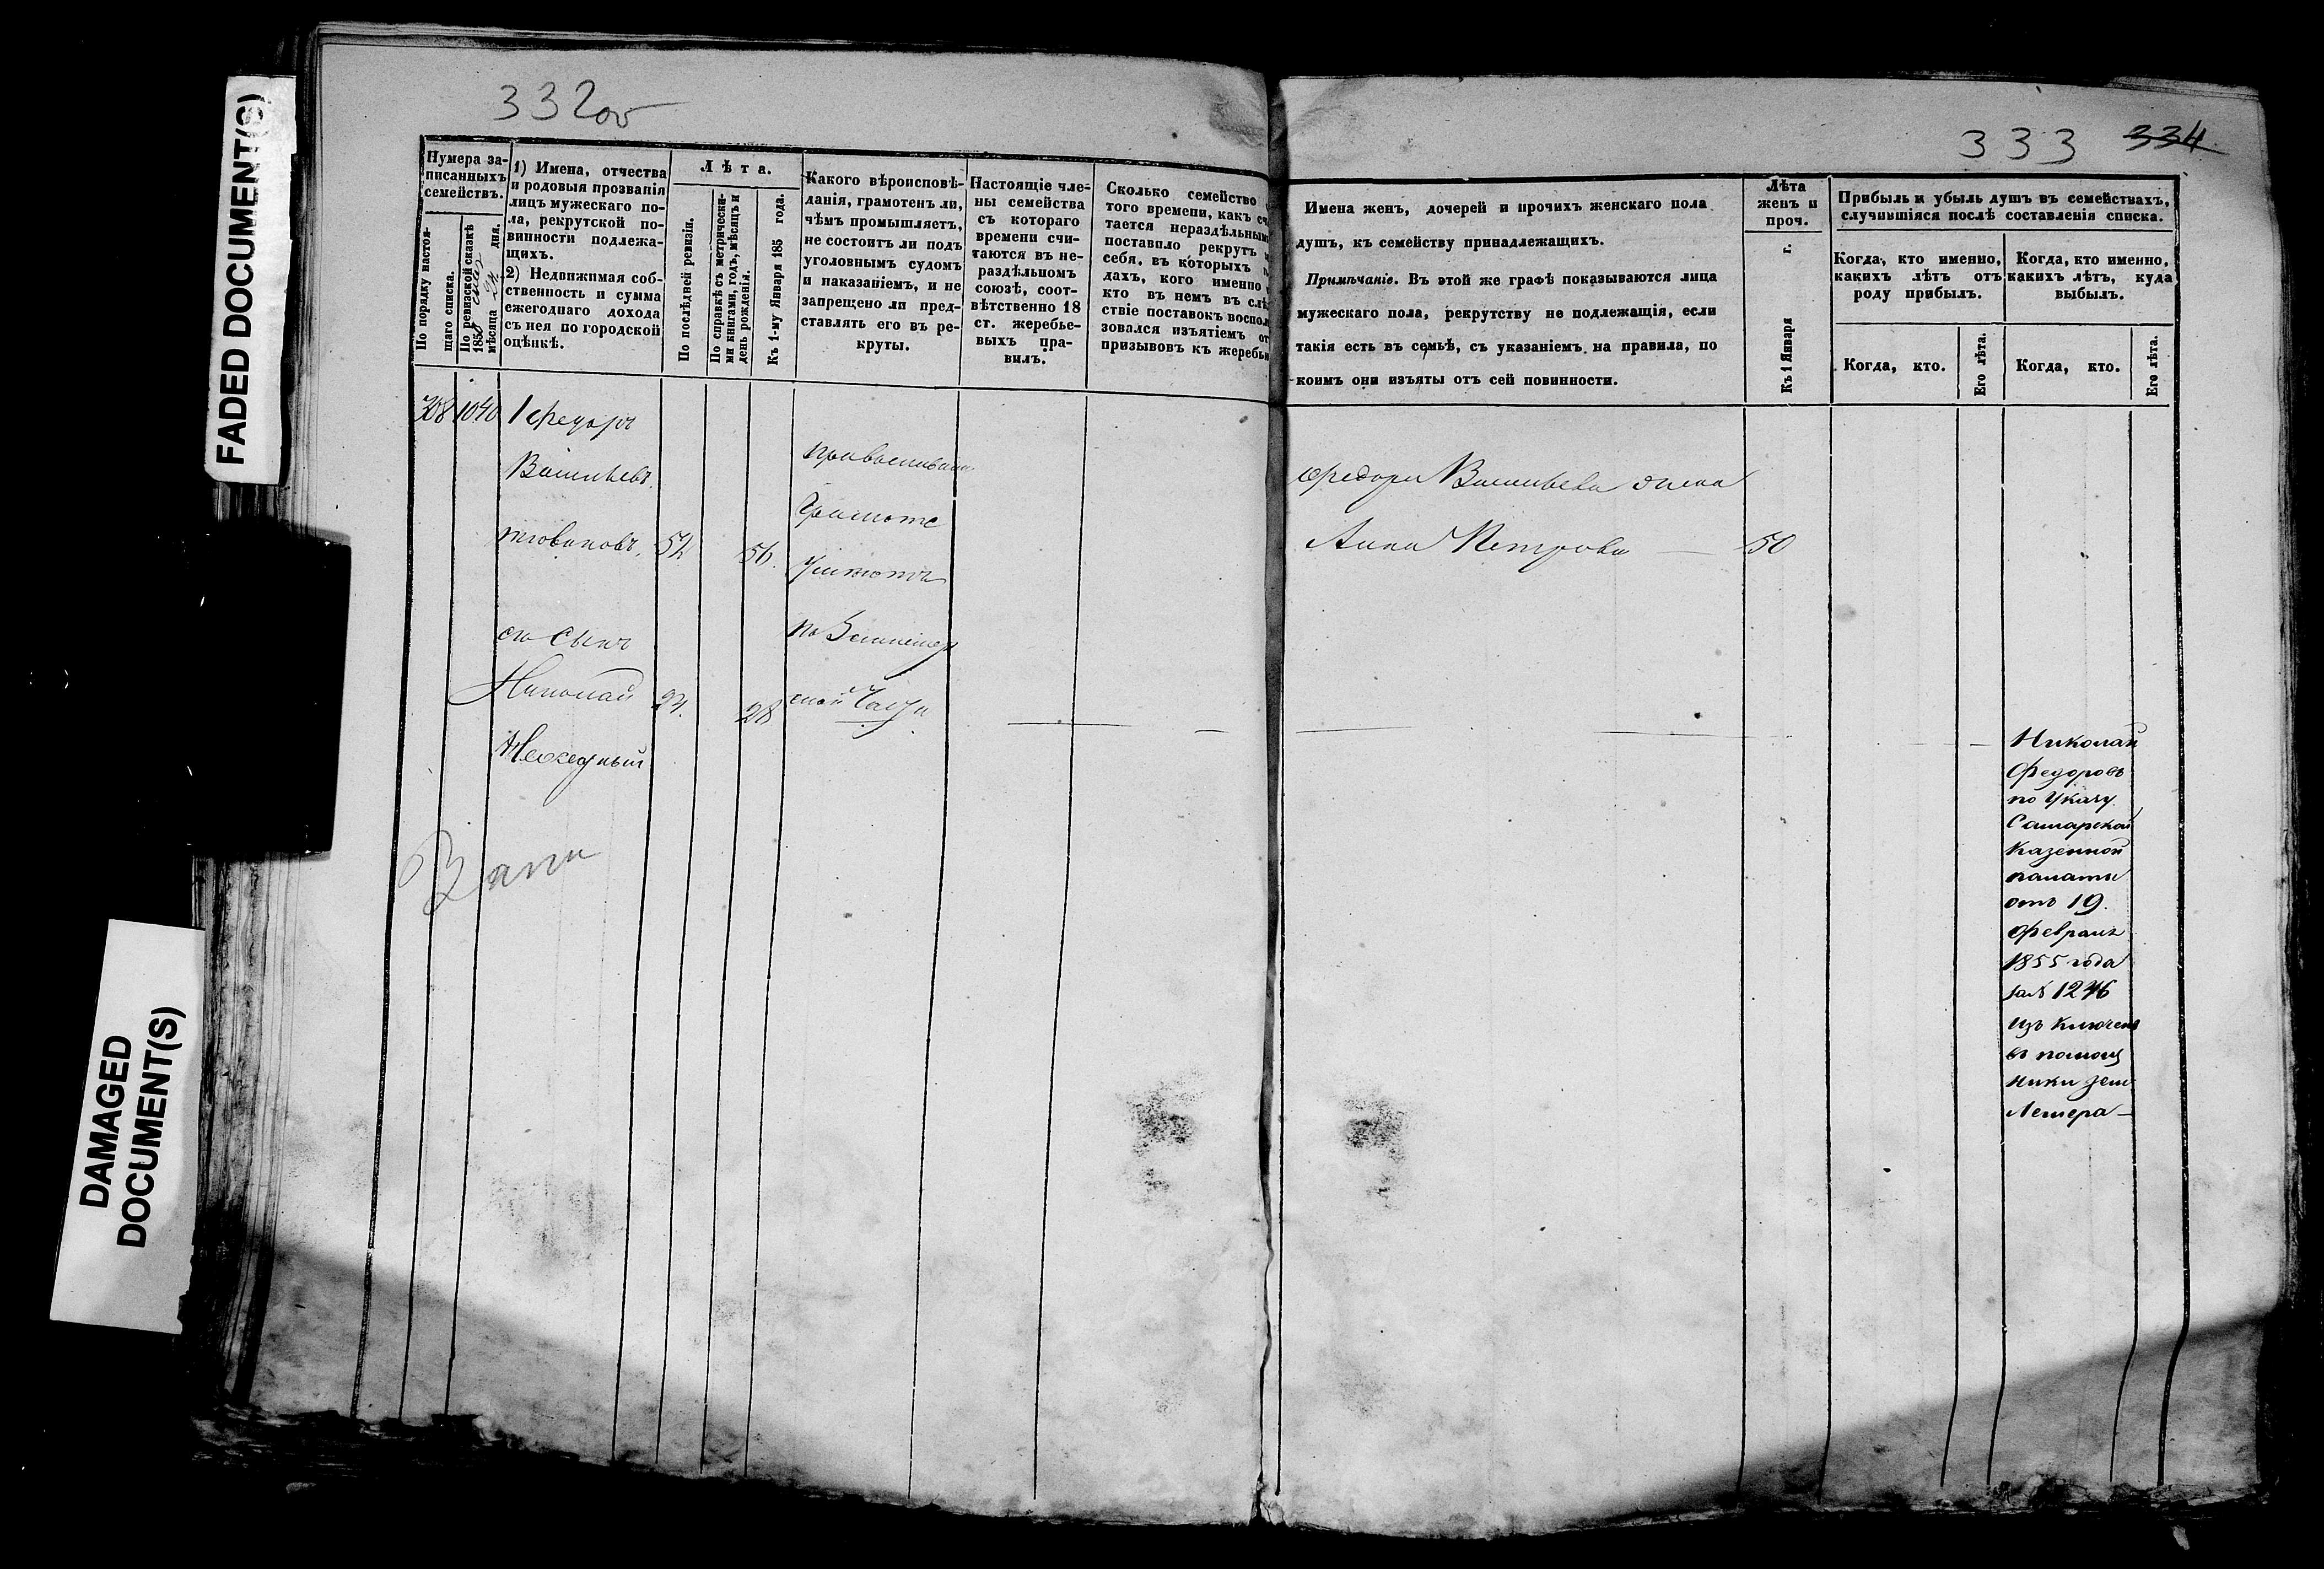 FADED DOCUMENT(S)
DAMAGED
DOCUMENT(S)
332об
Нумера за-
писанныхъ
семействъ.
По порядку настоя-
щаго списка.
По ревизской сказкѣ
185
мѣсяца 24 дня.
1) Имена, отчества
и родовыя прозванія
лицъ мужескаго по-
ла, рекрутской по-
винности подлежа-
щихъ.
2) Недвижимая соб-
ственность и сумма
ежегоднаго дохода
съ нея по городской
оцѣнкѣ.
Лѣта.
По послѣдней ревизіи.
По справкѣ съ метрически-
ми книгами, годъ, мѣсяцъ и
день рожденія.
Къ 1-му Января 185 года.
Какого вѣроисповѣ-
данія, грамотенъ ли,
чѣмъ промышляетъ,
не состоитъ ли подъ
уголовнымъ судомъ
и наказаніемъ, и не
запрещено ли пред-
ставлять его въ ре-
круты.
Настоящіе чле-
ны семейства
съ котораго
времени счи-
таются въ не-
раздѣльномъ
союзѣ, соот-
вѣтственно 18
ст. жеребье-
выхъ пра-
вилъ.
Сколько семейство
того времени, какъ сч
тается нераздѣльным
поставило рекрутъ
себя, въ которыхъ
дахъ, кого именно
кто въ немъ въ слѣ
ствіе поставокъ воспол
зовался изъятіемъ от
призывовъ къ жеребью
308 1040 1 Федоръ
Васильевъ
52 56.
Православнаго
Грамотѣ
его сынъ
Николай 24. 28
ской Части
333 334
Имена женъ, дочерей и прочихъ женскаго пола
душъ, къ семейству принадлежащихъ.
Примѣчаніе. Въ этой же графѣ показываются лица
мужескаго пола, рекрутству не подлежащія, если
такія есть въ семьѣ, съ указаніемъ на правила, по
коимъ они изъяты отъ сей повинности.
Лѣта
женъ и
проч.
Къ 1 Января г.
Прибыль и убыль душъ въ семействахъ,
случившіяся послѣ составленія списка.
Когда, кто именно,
какихъ лѣтъ отъ
роду прибылъ.
Когда, кто именно,
какихъ лѣтъ, куда
выбылъ.
Когда, кто.
Его лѣта.
Когда, кто.
Его лѣта.
Федора Васильева жена
Анна Петрова — 50
Николай
Федоровъ
по Указу
Самарской
Казенной
палаты
отъ 19
Февраля
1855 года
за № 1246
Изъ ключенъ
въ помощ
ники зем
лемера —